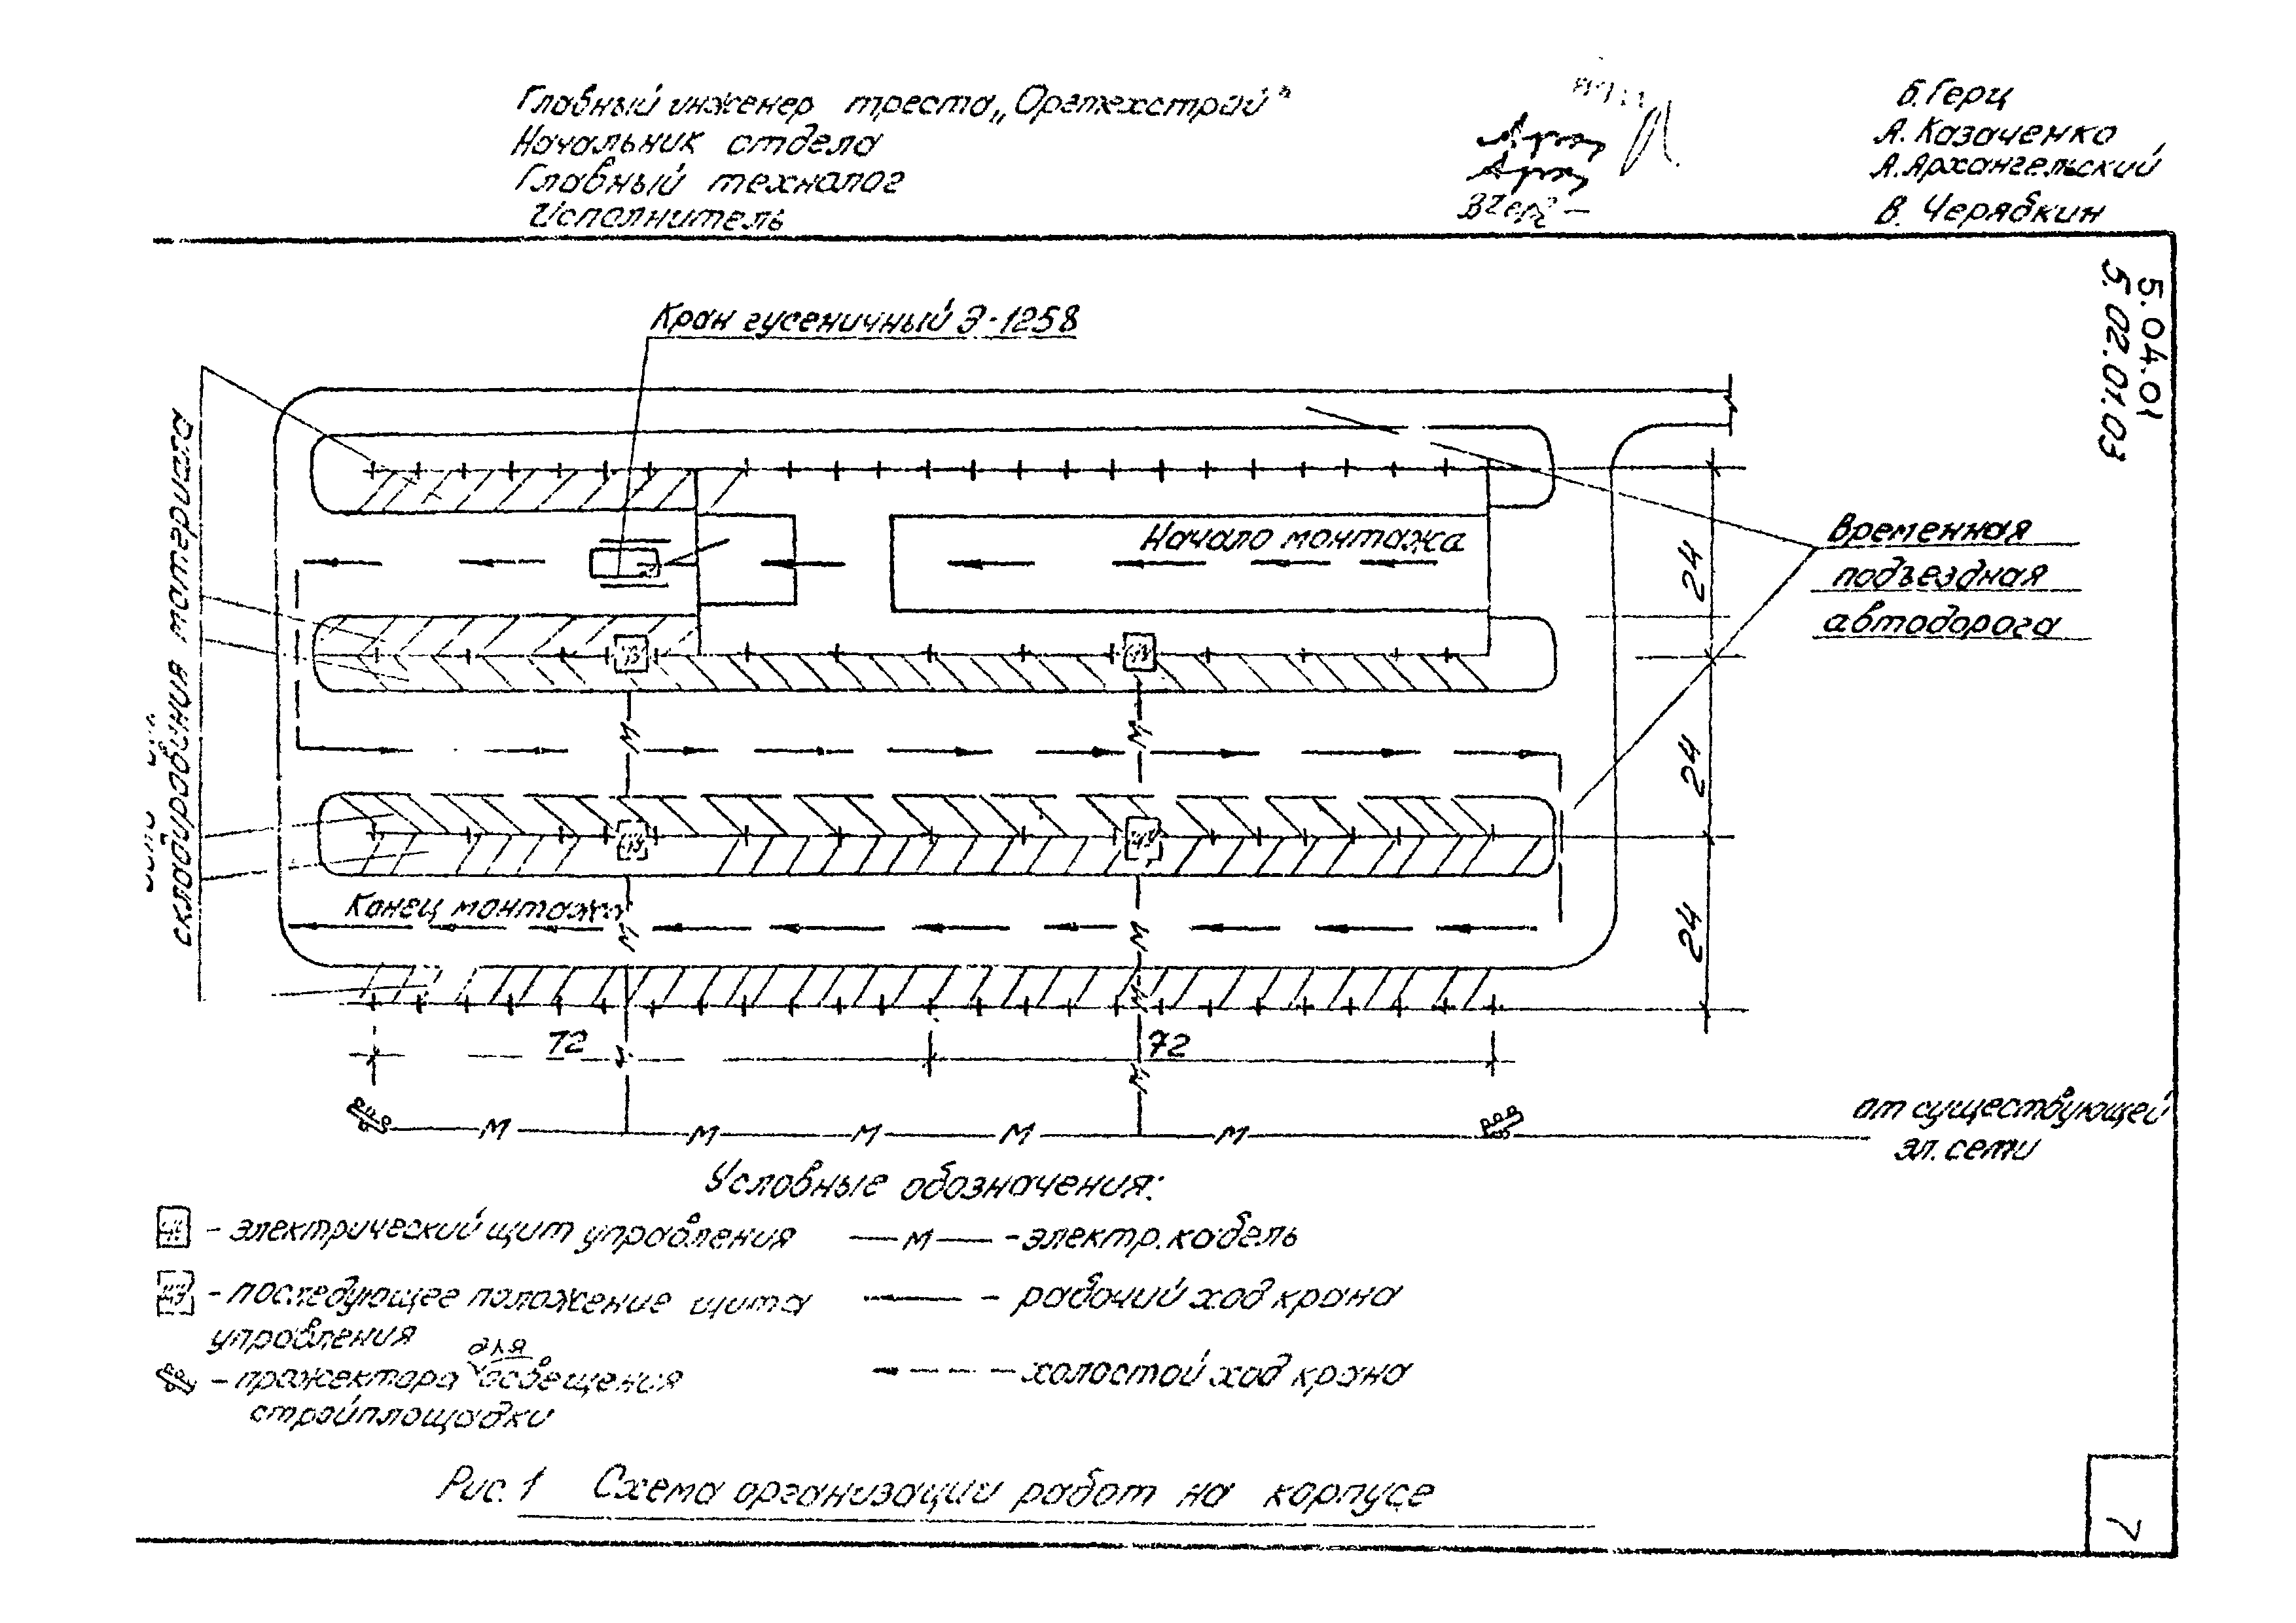 Главный инженер треста „Оргтехстрой"
Начальник отдела
Главный технолог
Исполнитель
Б. Герц
А. Казаченко
А. Архангельский
В. Черябкин
5.04.01
5.02.01.03
Кран гусеничный Э-1258
Начало монтажа
Временная
подъездная
автодорога
24
24
24
складирования
Конец монтажа
72
72
М
М
М
М
М
М
М
М
М
М
от существующей
эл. сети
Условные обозначения:
- электрический щит управления
— М — - электр. кабель
- последующее положение щита
управления
- рабочий ход крана
- прожектора для освещения
стройплощадки
- холостой ход крана
Рис. 1 Схема организации работ на корпусе
7